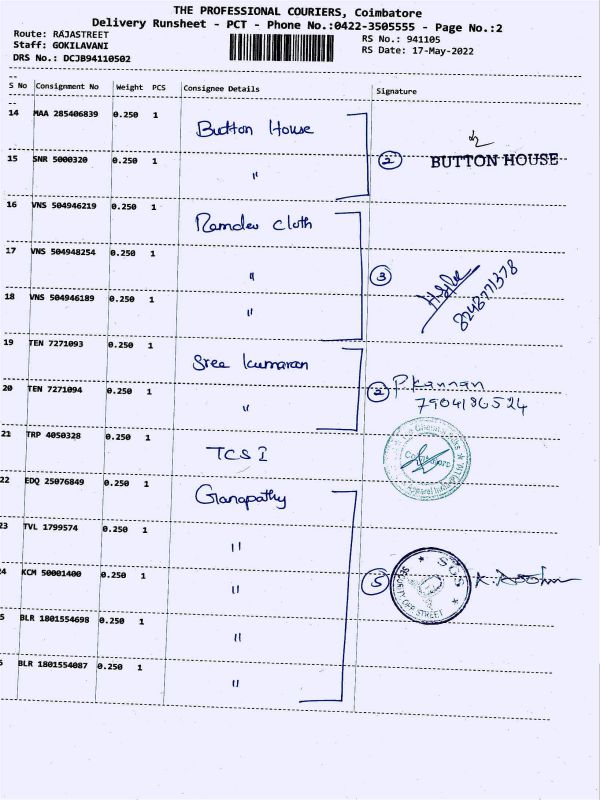 THE PROFESSIONAL COURIERS, Coimbatore
Delivery Runsheet - PCT - Phone No.:0422-3505555 - Page No.:2
Route: RAJASTREET
Staff: GOKILAVANI
DRS No.: DCJB94110502
RS No.: 941105
RS Date: 17-May-2022
S No Consignment No Weight PCS Consignee Details Signature
14 MAA 285406839 0.250 1 Button House
15 SNR 5000320 0.250 1 "
2 BUTTON HOUSE
16 VNS 504946219 0.250 1 Ramdev cloth
17 VNS 504948254 0.250 1 "
3
18 VNS 504946189 0.250 1 "
8248771378
19 TEN 7271093 0.250 1 Sree kumaran
20 TEN 7271094 0.250 1 "
2 P Kannan
7904186524
21 TRP 4050328 0.250 1 TCS I
Coimbatore
22 EDQ 25076849 0.250 1 Ganapathy
23 TVL 1799574 0.250 1 "
24 KCM 50001400 0.250 1 "
5 SECURITY, OPP. STREET
5 BLR 1801554698 0.250 1 "
BLR 1801554087 0.250 1 "